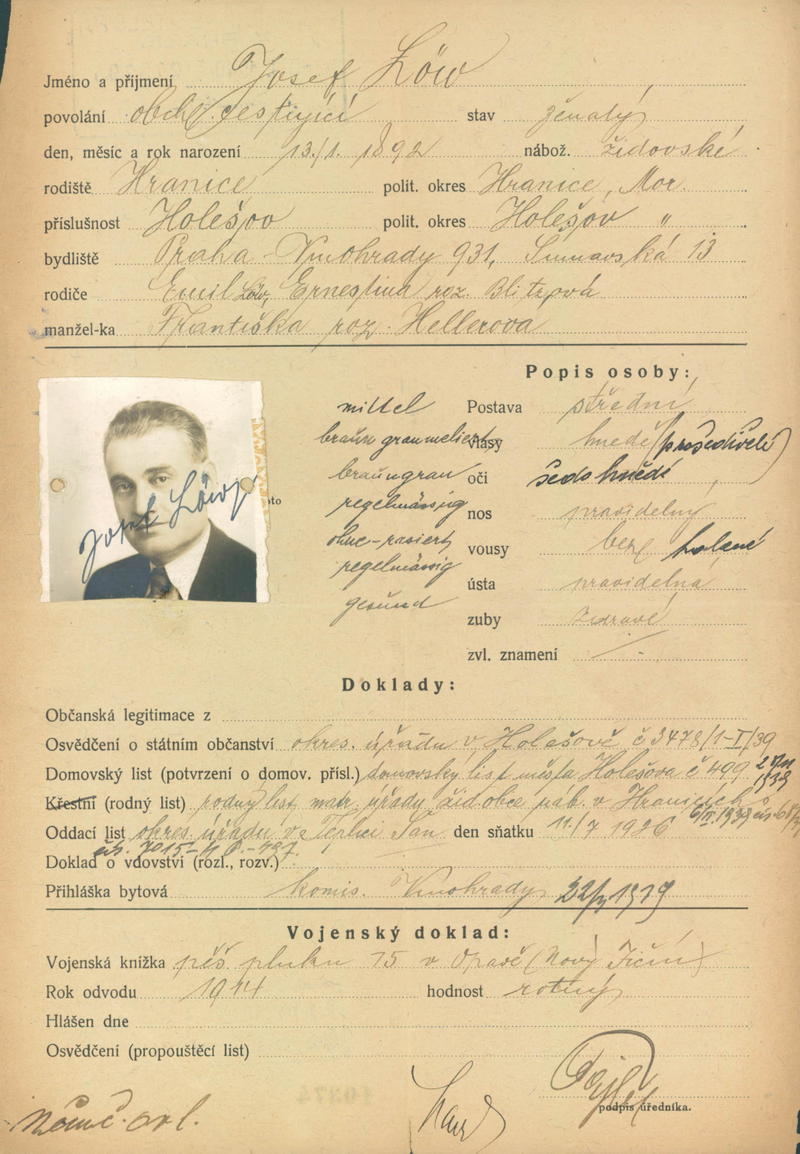 Jméno a příjmení Josef Löw
povolání obch. cestující stav ženatý
den, měsíc a rok narození 13/1. 1892 nábož. židovské
rodiště Hranice polit. okres Hranice, Mor.
příslušnost Holešov polit. okres Holešov "
bydliště Praha - Vinohrady 931, Šumavská 13
rodiče Emil Löw, Ernestina roz. Blitzová
manžel-ka Františka roz. Hellerova
Popis osoby:
mittel Postava střední
braun graumeliert vlasy hnedé (prošedivělé)
braungrau oči šedohnědé
regelmässig nos pravidelný
ohne-rasiert vousy bez holené
regelmässig ústa pravidelná
gesund zuby zdravé
zvl. znamení
Josef Löw
Doklady:
Občanská legitimace z
Osvědčení o státním občanství okres. úřadu v Holešově č 3478/1-I/39
Domovský list (potvrzení o domov. přísl.) domovský list města Holešova č 499
Křestní (rodný list) rodný list matr. úřadu žid obce náb. v Hranicích
Oddací list okres. úřadu v Teplici Šan. den sňatku 11/7 1926
Doklad o vdovství (rozl., rozv.)
Přihláška bytová komis. Vinohrady
Vojenský doklad:
Vojenská knížka pěš. pluku 15 v Opavě (Nový Jičín)
Rok odvodu 1914 hodnost rotný
Hlášen dne
Osvědčení (propouštěcí list)
podpis úředníka.